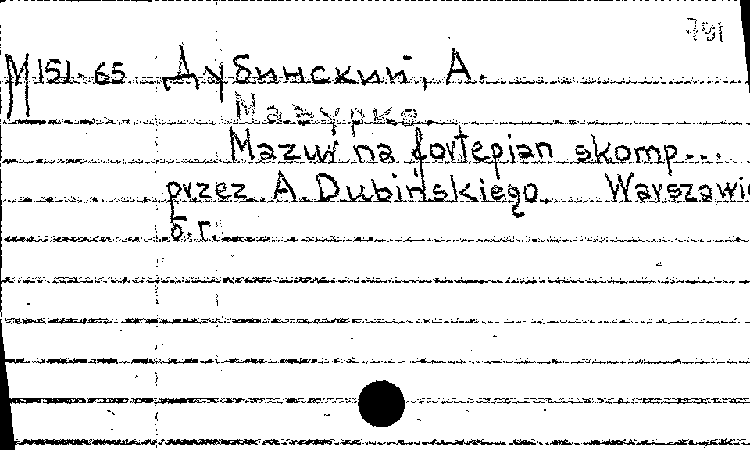 791
М151-65 Дубинский, А.
Мазурка.
Mazur na fortepian skomp...
przez A. Dubińskiego. Warszawie
б.г.